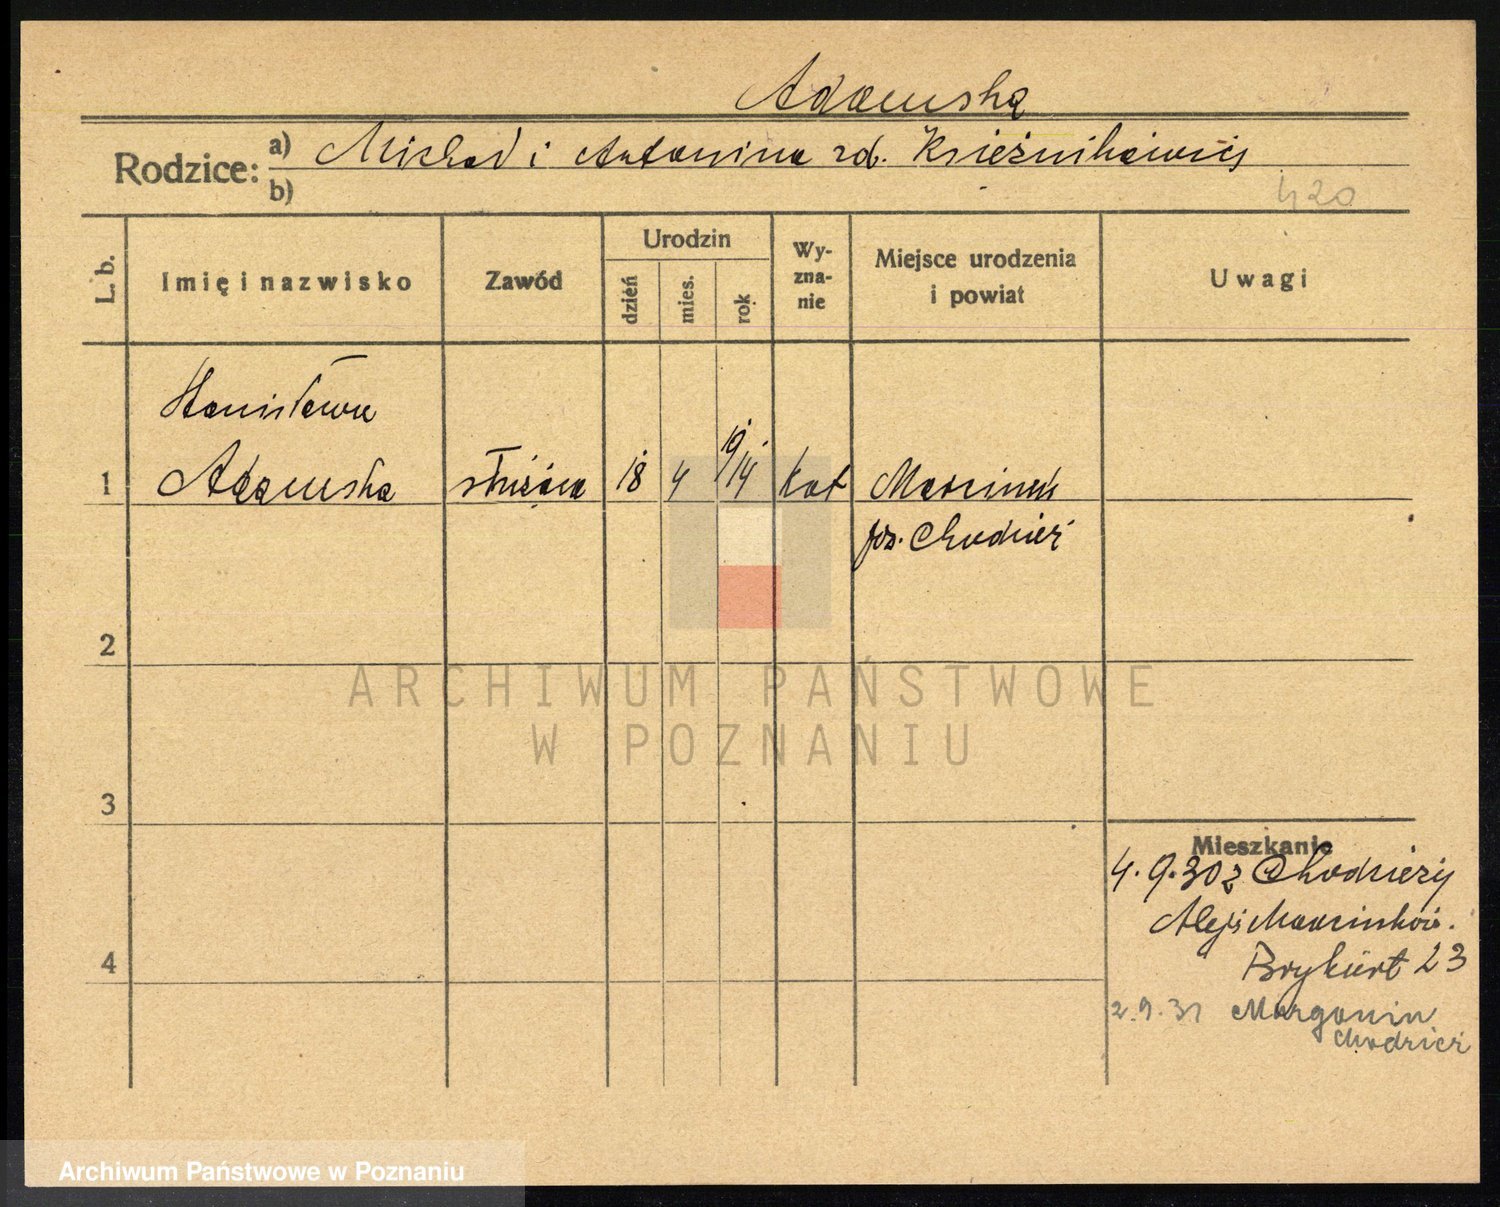 Adamska
Rodzice: a) Michał i Antonina zd. Księżnikiewicz
b)
420
L. b. Imię i nazwisko Zawód Urodzin dzień mies. rok Wy-zna-nie Miejsce urodzenia i powiat Uwagi
Stanisława
1 Adamska służąca 18 4 19/14 kat Marcinek
pow. Chodzież
2
ARCHIWUM PAŃSTWOWE
W POZNANIU
3
Mieszkanie
4.9.30 z Chodzieży
Aleje Marcinkow.
4 23
2.9.31 Margonin
Chodzież
Archiwum Państwowe w Poznaniu